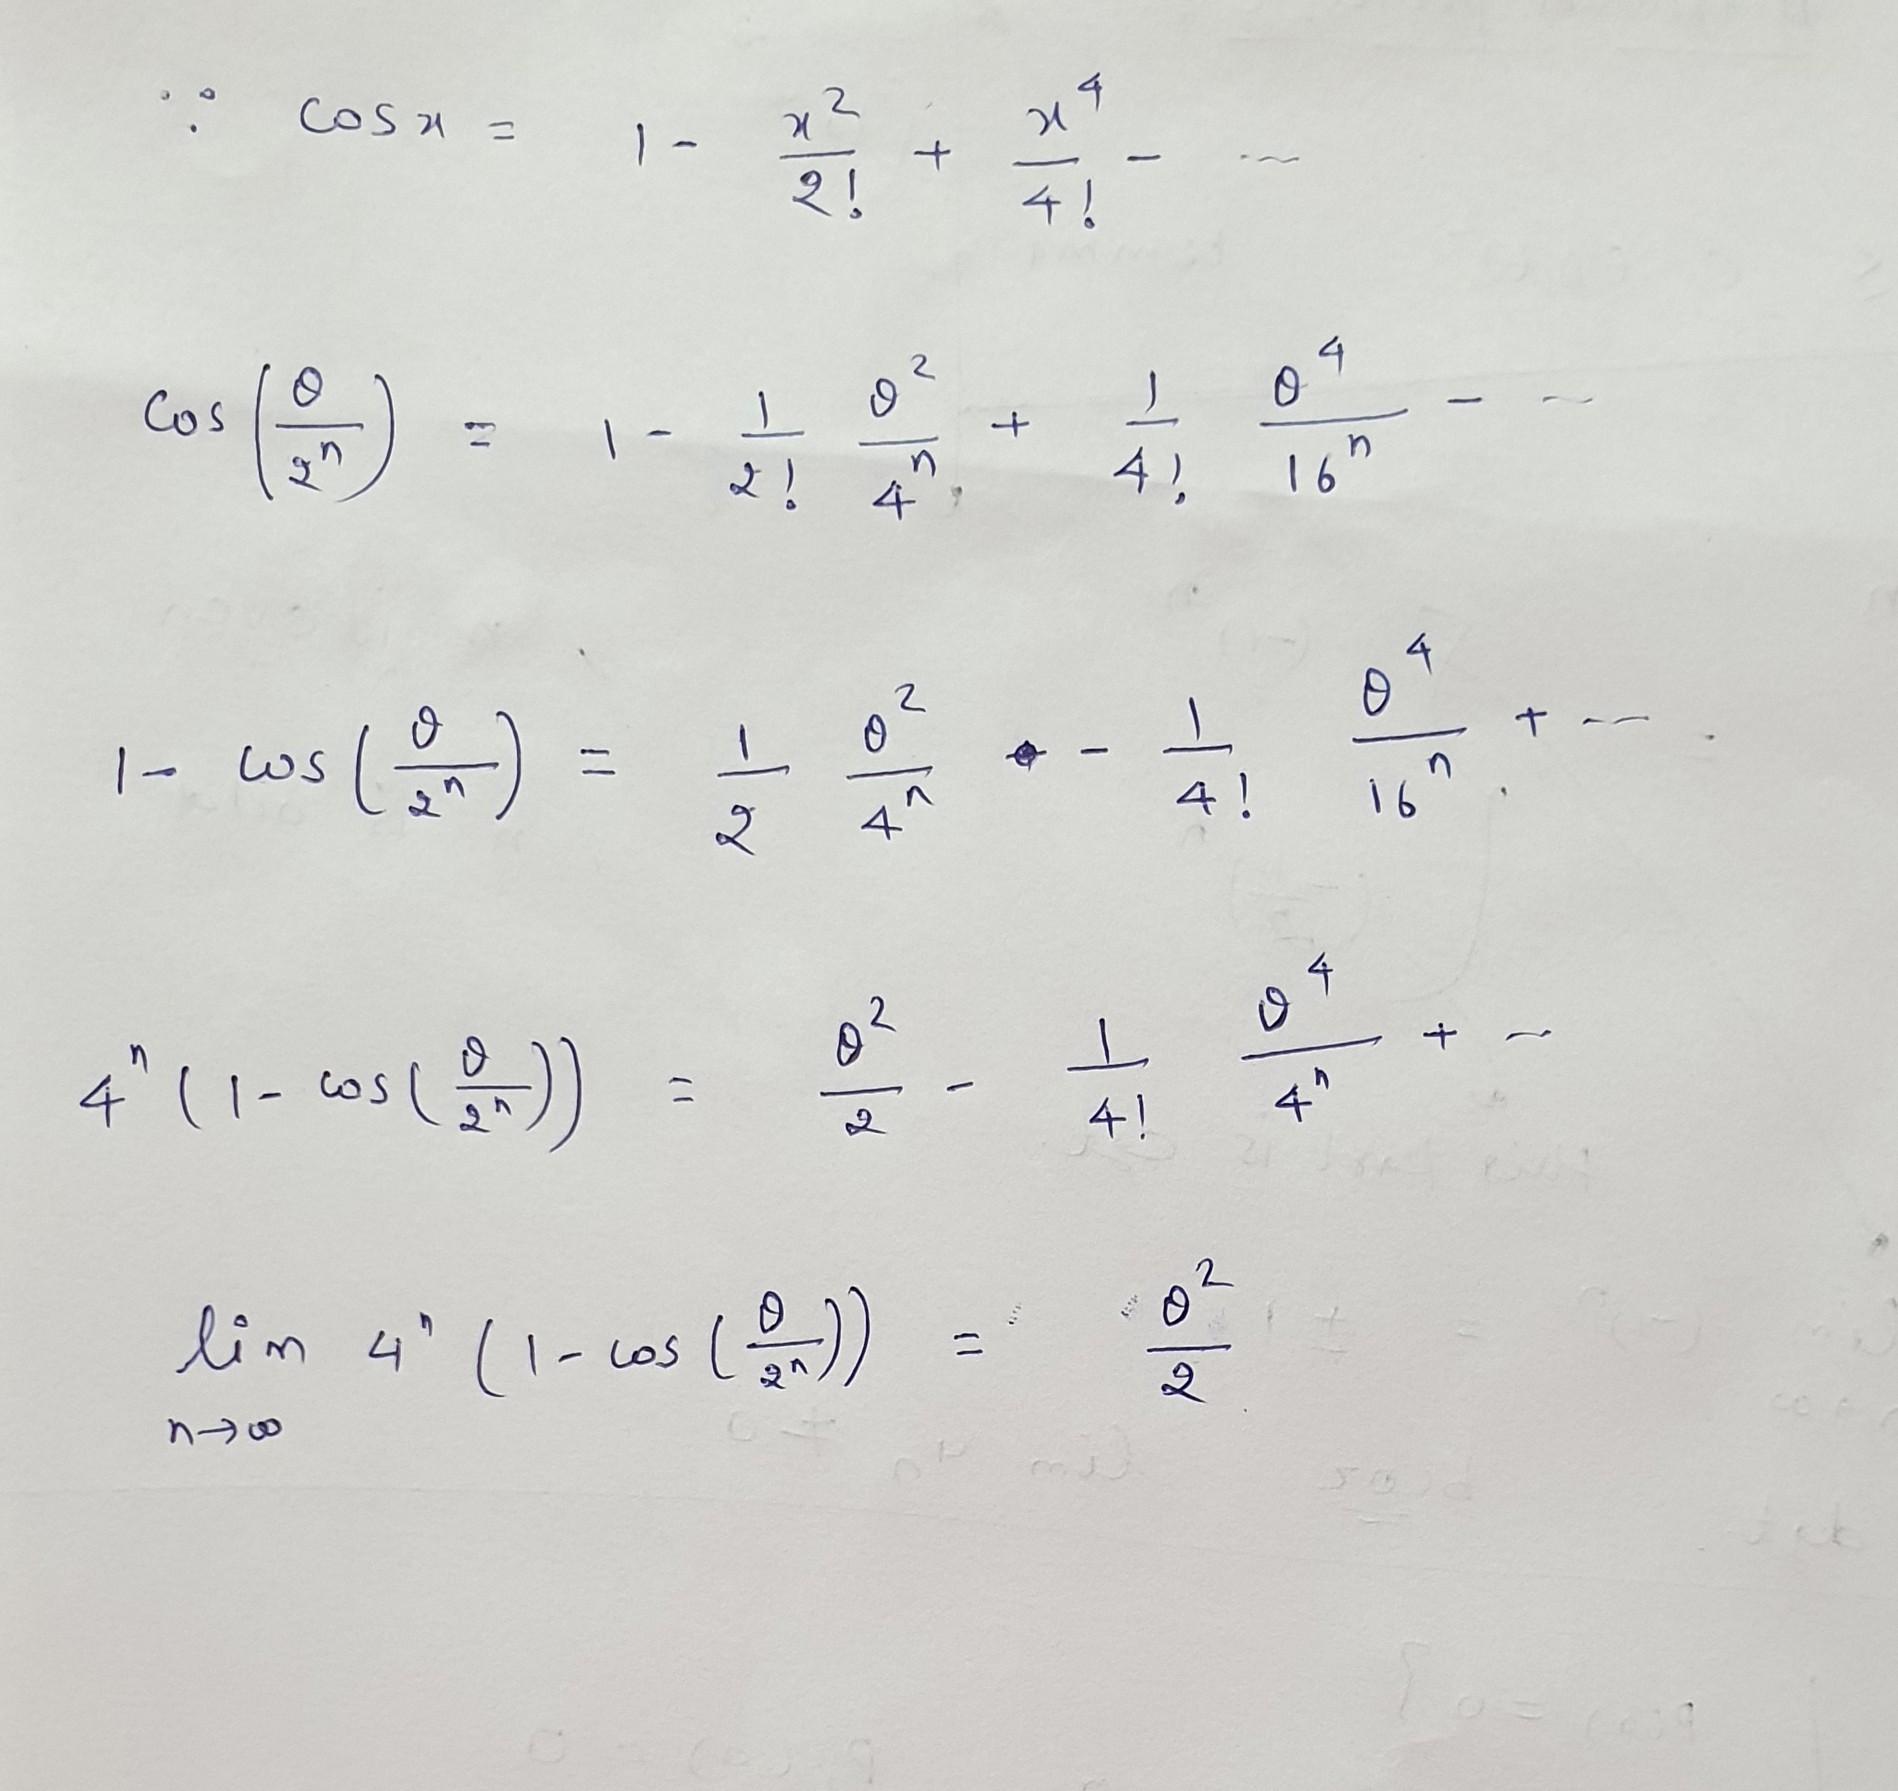 ∵ cos x = 1 - x²/2! + x⁴/4! - ...
cos(θ/2ⁿ) = 1 - 1/2! θ²/4ⁿ + 1/4! θ⁴/16ⁿ - ...
1 - cos(θ/2ⁿ) = 1/2 θ²/4ⁿ - 1/4! θ⁴/16ⁿ + ...
4ⁿ(1 - cos(θ/2ⁿ)) = θ²/2 - 1/4! θ⁴/4ⁿ + ...
lim 4ⁿ(1 - cos(θ/2ⁿ)) = θ²/2
n→∞